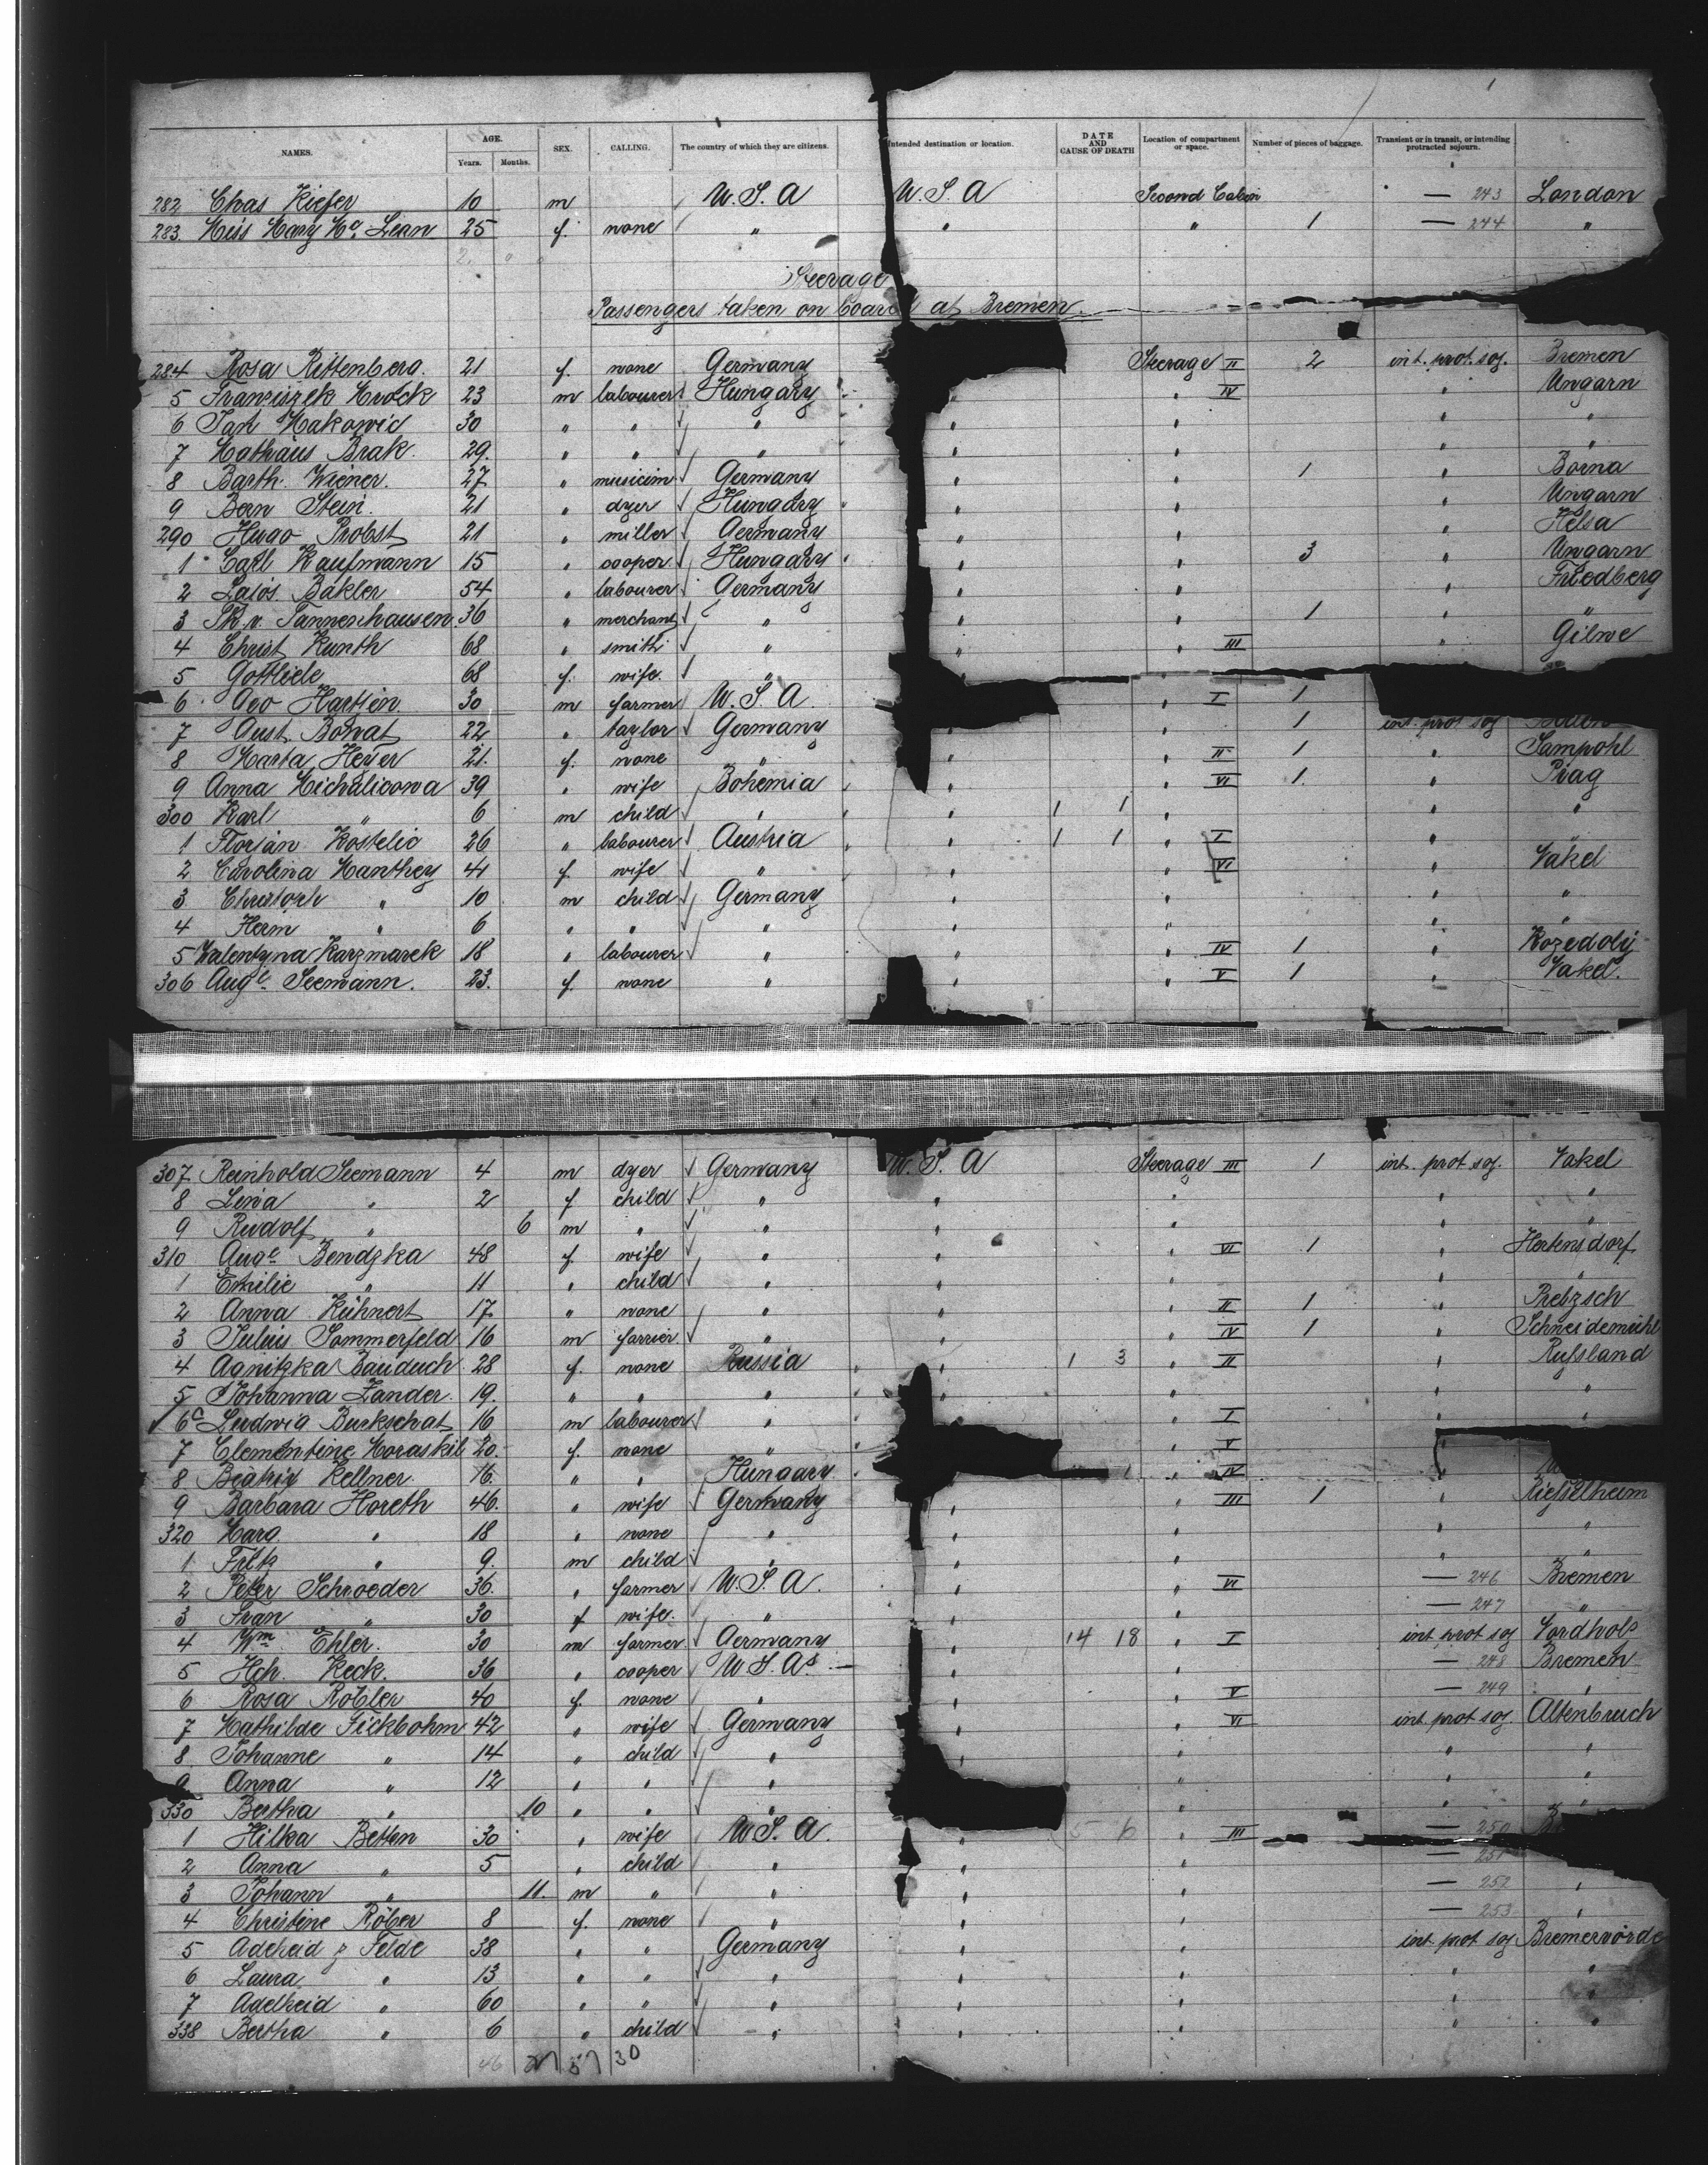 NAMES. AGE. Years. Months. SEX. CALLING. The country of which they are citizens. Intended destination or location. DATE AND CAUSE OF DEATH Location of compartment or space. Number of pieces of baggage. Transient or in transit, or intending protracted sojourn.
282 Chas Kiefer 10 m U. S. A U. S. A Second Cabin — 243 London
283 Miss Mary Mc Lean 25 f. none " " " 1 — 244 "
Steerage
Passengers taken on board at Bremen
284 Rosa Rittenberg. 21 f. none Germany Steerage II 2 int. prot. soj. Bremen
5 Franziszek Mrock 23 m labourer Hungary " IV " Ungarn
6 Jan Makowic 30 " " " " " " "
7 Mathäus Brak. 29. " " " " " " "
8 Barth. Wiener. 27 " musician Germany " " 1 " Borna
9 Bern Stein. 21 " dyer Hungary " " " Ungarn
290 Hugo Probst 21 " miller Germany " " " Helsa
1 Carl Kaufmann 15 " cooper Hungary " " 3 " Ungarn
2 Lajos Bakler 54 " labourer Germany " " " Friedberg
3 Th. v. Tannenhausen 36 " merchant " " " 1 " "
4 Christ Kunth 68 " smith " " " III " Gilwe
5 Gottliede 68 f. wife "
6 Geo Hartien 30 m farmer U. S. A. " I 1
7 Aust Bonat 22 " taylor Germany " 1 int. prot soj
8 Marta Heyer 21. f. none " " " II 1 " Sampohl
9 Anna Michalicowa 39 " wife Bohemia " " VI 1. " Prag
300 Karl " 6 m child " " 1 1 " " "
1 Florian Kostelic 26 " labourer Austria " 1 1 " I " "
2 Carolina Manthey 41 f. wife " " " VI " Nakel
3 Christoph " 10 m child Germany " " " "
4 Herm " 6 " " " " " " "
5 Walentyna Karzmarek 18 " labourer " " " IV 1 " Kozedoly
306 Augte Seemann. 23. f. none " " " V 1 " Nakel.
307 Reinhold Seemann 4 m dyer Germany U. S. A Steerage III 1 int. prot soj. Nakel
8 Lina " 2 f child " " " " "
9 Rudolf " 6 m " " " " " "
310 Augte Bendzka 48 f. wife " " " VI 1 " Hertensdorf
1 Emilie " 11 " child " " " " "
2 Anna Kühnert 17 " none " " " II 1 " Prebzsch
3 Julius Sommerfeld 16 m farrier " " " IV 1 " Schneidemühl
4 Agnitzka Bauduch 28 f. none Russia " 1 3 " II " Russland
5 Johanna Zander. 19. " " " " " " "
6 Ludwig Burkschat 16 m labourer " " I " "
7 Clementine Moraskil 20. f. none " " V
8 Beatrix Kellner. 16. " " Hungary " IV "
9 Barbara Horeth 46. " wife Germany " " III 1 " Riesselheim
320 Marg. " 18 " none " " " " "
1 Fritz " 9. m child " " " " "
2 Peter Schroeder 36. " farmer U. S. A. " " VI — 246 Bremen
3 Fran " 30 f wife. " " " — 247 "
4 Wm Ehler. 30 m farmer Germany " 14 18 " I int. prot soj Nordholz
5 Hch. Keck. 36 " cooper U S. A " " — 248 Bremen
6 Rosa Robler 40 f. none " " " V — 249 "
7 Mathilde Fickbohm 42 " wife Germany " " VI int. prot soj Altenbruch
8 Johanne " 14 " child " " " " "
9 Anna " 12 " " " " " "
330 Bertha " 10 " " " " " "
1 Hilka Betten 30 " wife U. S. A. " 5 6 " III — 250
2 Anna " 5 " child " " " — 251
3 Johann " 11. m " " " " — 252 "
4 Christine Röber 8 f. none " " " — 253 "
5 Adeheid z Felde 38 " " Germany " " int. prot soj Bremervörde
6 Laura " 13 " " " " " " "
7 Adelheid " 60 " " " " " " "
338 Bertha " 6 " child " " " " "
46 27 57 30